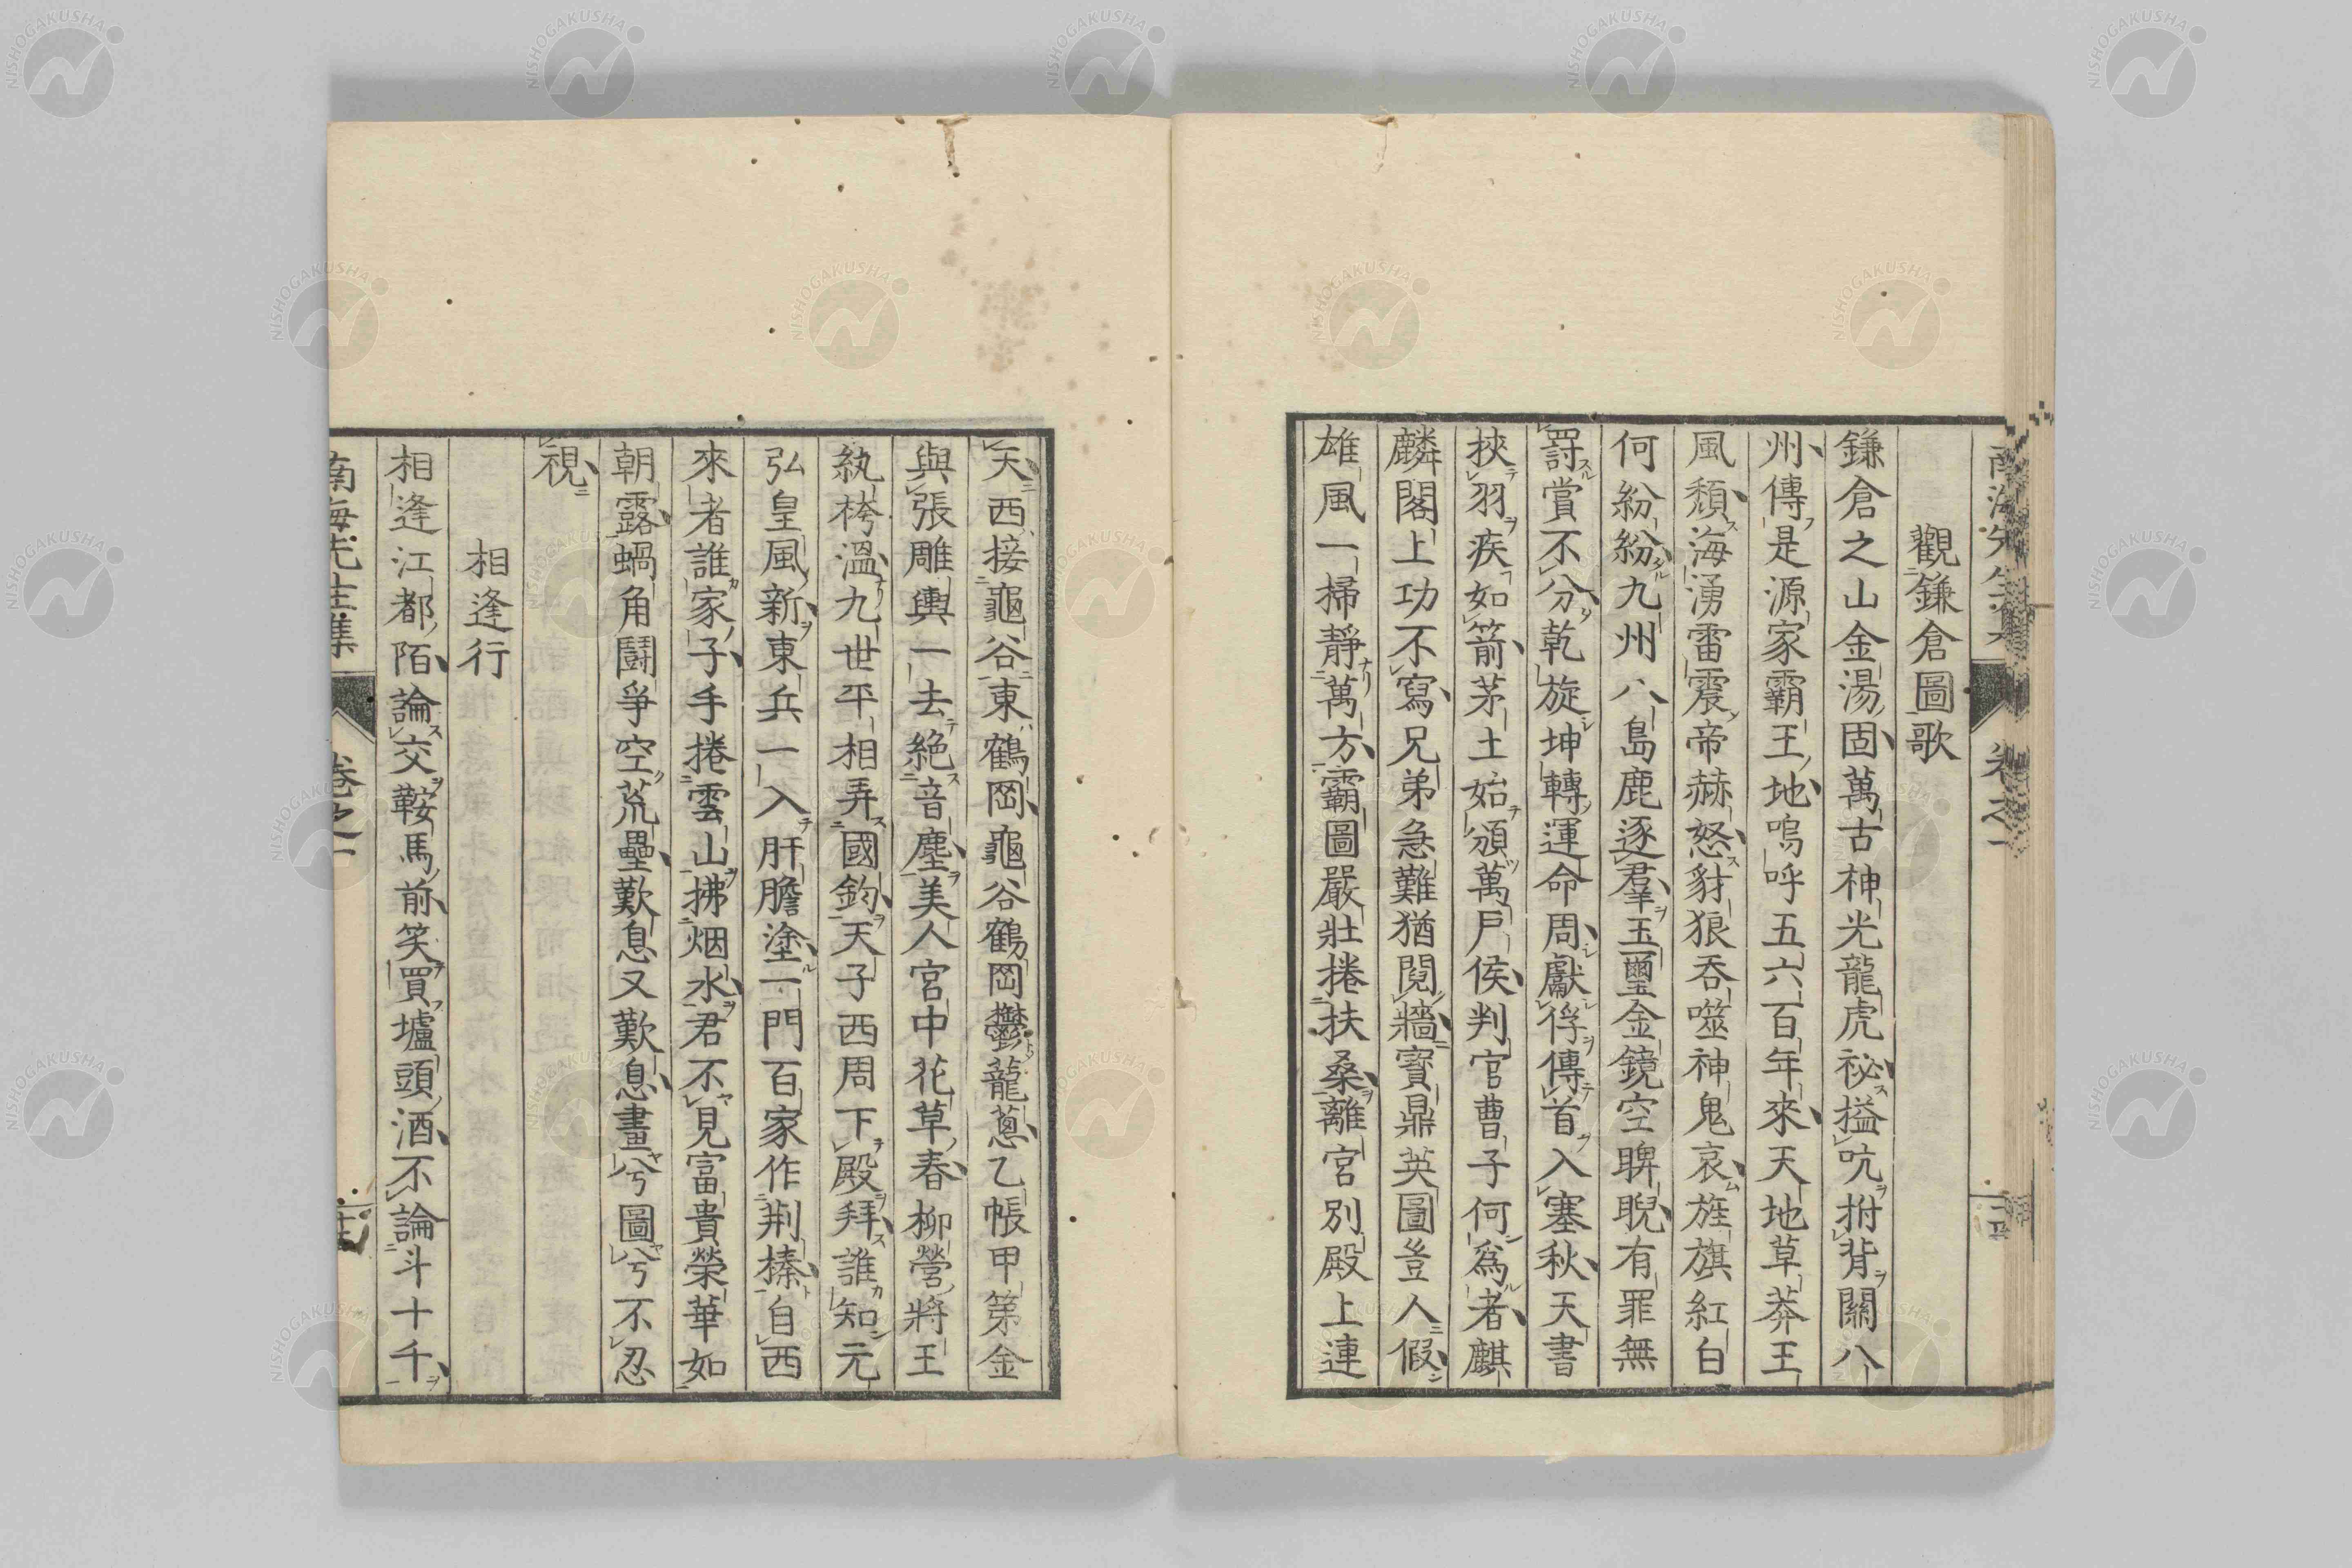 觀鎌倉圖歌
鎌倉之山金湯固萬古神光龍虎祕搤吭拊背關八
州傳是源家霸王地嗚呼五六百年來天地草莽王
風頽海湧雷震帝赫怒豺狼吞噬神鬼哀旌旗紅白
何紛紛九州八島鹿逐羣玉璽金鏡空睥睨有罪無
罸賞不分乾旋坤轉運命周獻俘傳首入塞秋天書
挾羽疾如箭茅土始頒萬戶侯判官曹子何爲者麒
麟閣上功不寫兄弟急難猶鬩牆寶鼎英圖豈人假
雄風一掃靜萬方霸圖嚴壯捲扶桑離宮別殿上連
天西接龜谷東鶴岡龜谷鶴岡鬱龍蔥乙帳甲第金
與張雕輿一去絕音塵美人宮中花草春柳營將王
紈袴溫九世平相弄國鈞天子西周下殿拜誰知元
弘皇風新東兵一入肝膽塗一門百家作荆榛自西
來者誰家子手捲雲山拂烟水君不見富貴榮華如
朝露蝸角鬪爭空荒壘歎息又歎息畫兮圖兮不忍
視
相逢行
相逢江都陌論交鞍馬前笑買壚頭酒不論斗十千
南海先生集
卷之一
NISHOGAKUSHA